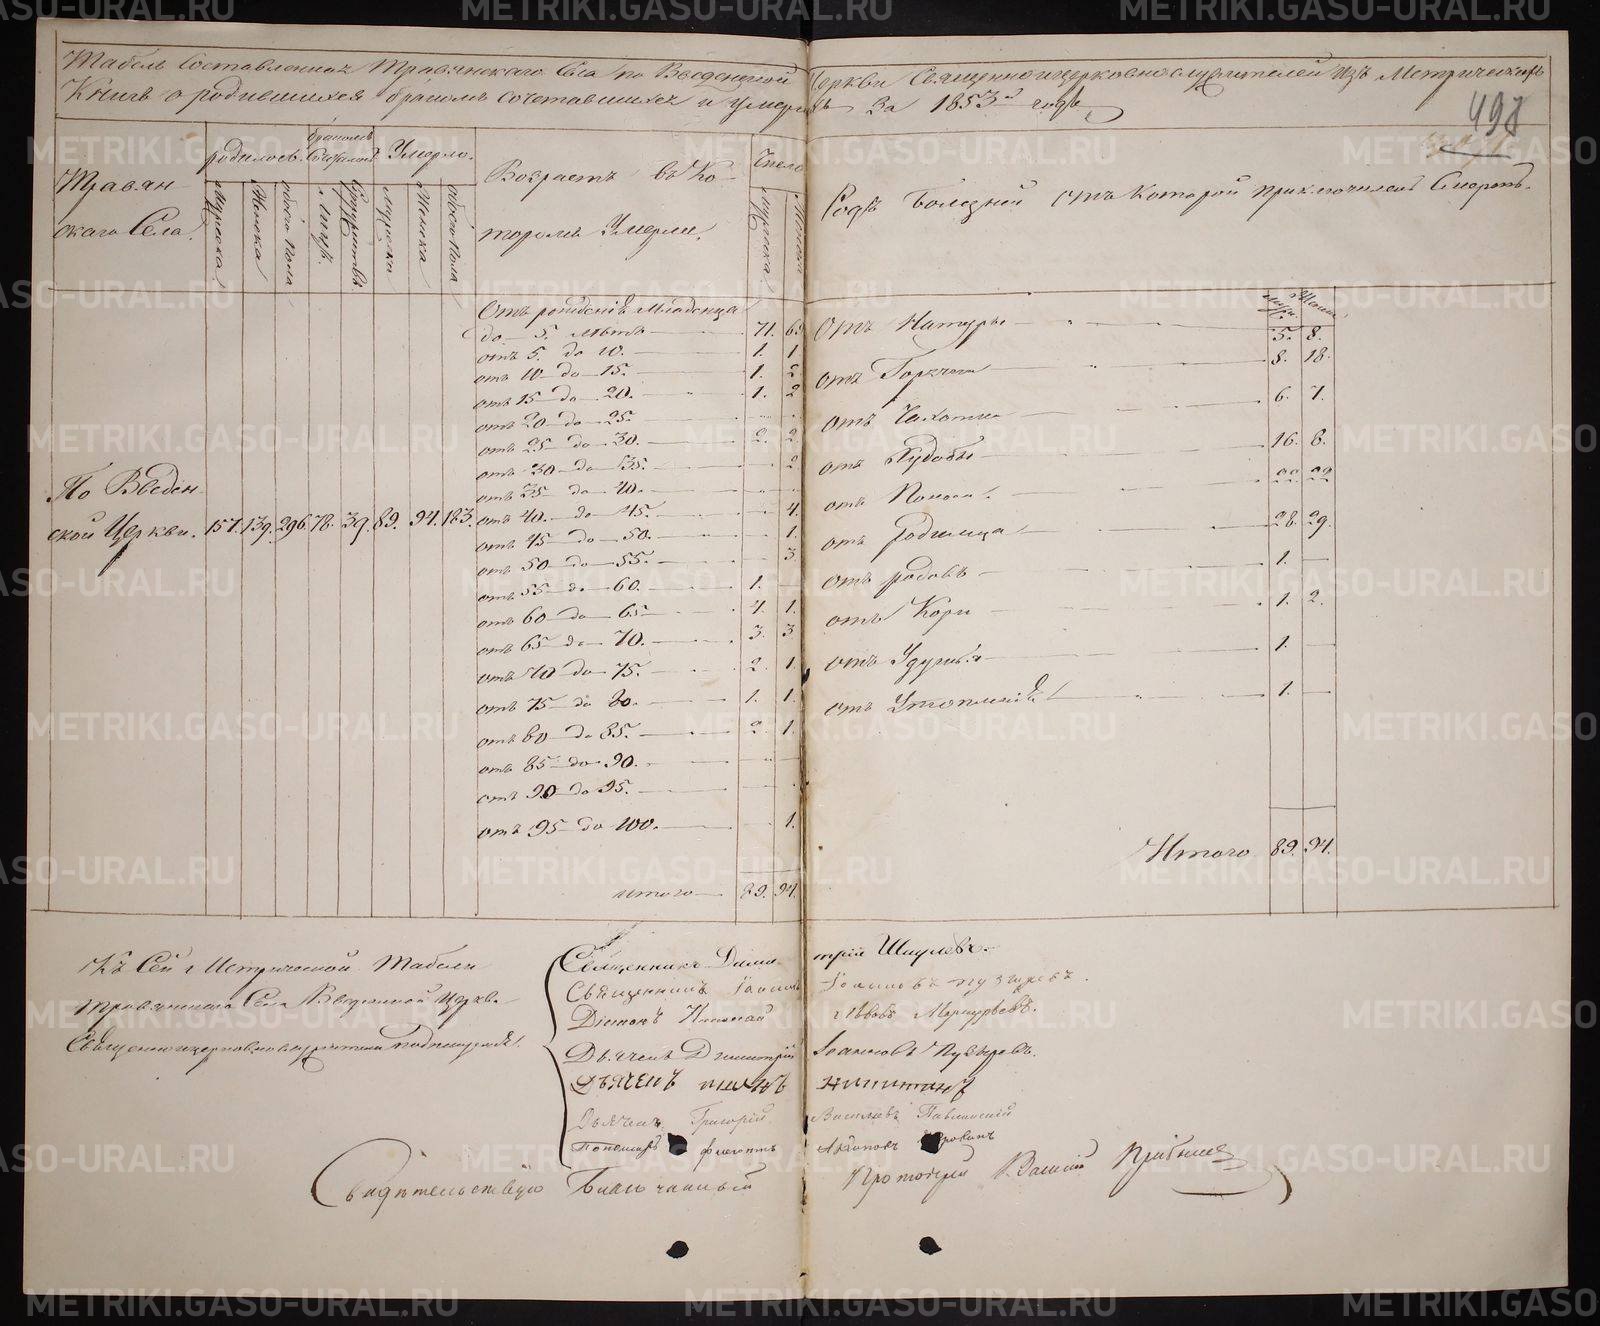 Табель Составленная Травянскаго Села по Введенской Церкви Священноицерковнослужителей изъ Метрическихъ
Книгъ о родившихся бракомъ сочетавшихся и умершихъ За 1853й годъ
498
Травян-
скаго Села.
родилось.
бракомъ
Умерло.
мужеска
женска
обоего пола
Лицъ.
Супружствъ
мужеска
Женска
обоего пола
Возрастъ въ Ко-
торомъ Умерли.
Число
мужеска
Женска
Родъ Болезней отъ Которой приключилась Смерть.
По Введен-
ской Церкви. 157. 139. 296. 78. 39. 89. 94. 183.
Отъ рожденія Младенца
до 5. лѣтъ 71.
отъ 5. до 10. 1. 1.
отъ 10 до 15. 1. 2
отъ 15 до 20. 1. 2
отъ 20 до 25.
отъ 25 до 30. 2. 2.
отъ 30 до 35. 2.
отъ 35 до 40.
отъ 40. до 45. 4.
отъ 45 до 50. 1.
отъ 50 до 55. 3.
отъ 55 до 60. 1.
отъ 60 до 65 4. 1.
отъ 65 до 70. 3. 3
отъ 70 до 75. 2. 1.
отъ 75 до 80. 1. 1.
отъ 80 до 85. 2. 1.
отъ 85 до 90.
отъ 90 до 95.
отъ 95 до 100. 1.
итого 89. 94.
Отъ Натуры 5. 8.
отъ Горячки 8. 18.
отъ Чахотки 6. 7.
отъ Худобы 16. 8.
отъ Поноса 22. 22
отъ Родимца 28. 29.
отъ родовъ 1.
отъ Кори 1. 2.
отъ Удушья 1.
отъ 1.
Итого 89. 94.
Къ Сей Метрической Табели
травянскаго Села Введенской Церкви
Священноицерковнослужители подписуемся
Священникъ Димитрій Шишевъ.
Священникъ Іоаннъ Іоанновъ пузыревъ.
Діаконъ Николай Львовъ
Дьячекъ Димитрій Іоанновъ Пузыревъ.
Дьячекъ
Дьячекъ Григорій Васильевъ
Пономарь
Свидѣтельствую Благочинный Протоіерей
METRIKI.GASO-URAL.RU